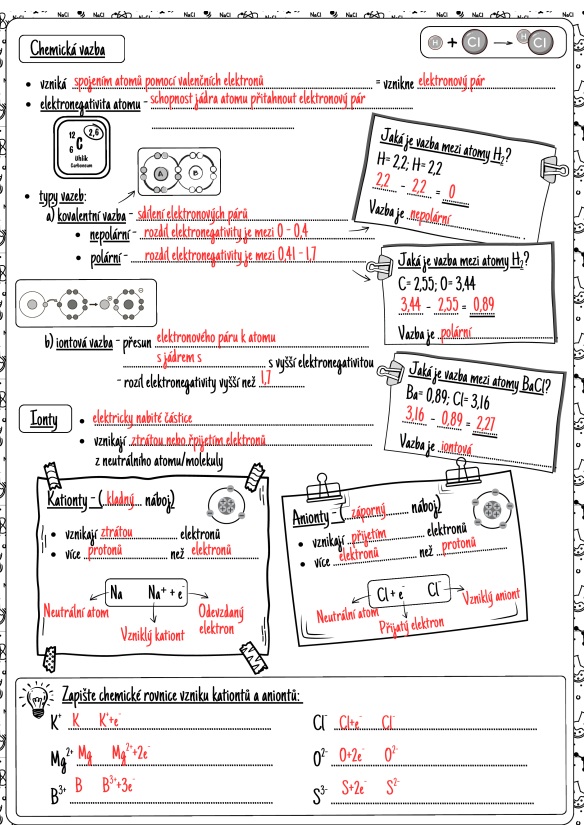 NaCl NaCl NaCl NaCl NaCl NaCl
Chemická vazba
H + Cl → H Cl
• vzniká spojením atomů pomocí valenčních elektronů = vznikne elektronový pár
• elektronegativita atomu - schopnost jádra atomu přitahnout elektronový pár
12 2,6
C
6
Uhlík
Carboneum
A B
Jaká je vazba mezi atomy H₂?
H= 2,2; H= 2,2
2,2 - 2,2 = 0
Vazba je nepolární
• typy vazeb:
a) kovalentní vazba - sdílení elektronových párů
• nepolární - rozdíl elektronegativity je mezi 0 - 0,4
• polární - rozdíl elektronegativity je mezi 0,41 - 1,7
Jaká je vazba mezi atomy H₂?
C= 2,55; O= 3,44
3,44 - 2,55 = 0,89
Vazba je polární
b) iontová vazba - přesun elektronového páru k atomu
s jádrem s s vyšší elektronegativitou
- rozíl elektronegativity vyšší než 1,7
Jaká je vazba mezi atomy BaCl?
Ba= 0,89; Cl= 3,16
3,16 - 0,89 = 2,27
Vazba je iontová
Ionty
• elektricky nabité částice
• vznikají ztrátou nebo řpijetím elektronů
z neutrálního atomu/molekuly
Kationty - (kladný náboj)
• vznikají ztrátou elektronů
• více protonů než elektronů
Na Na⁺ + e⁻
Neutrální atom
Vzniklý kationt
Odevzdaný
elektron
Anionty - (záporný náboj)
• vznikají přijetím elektronů
• více elektronů než protonů
Cl + e⁻ Cl⁻
Neutrální atom
Přijatý elektron
Vzniklý aniont
Zapište chemické rovnice vzniku kationtů a aniontů:
K⁺ K K⁺+e⁻
Mg²⁺ Mg Mg²⁺+2e⁻
B³⁺ B B³⁺+3e⁻
Cl⁻ Cl+e⁻ Cl⁻
O²⁻ O+2e⁻ O²⁻
S³⁻ S+2e⁻ S²⁻